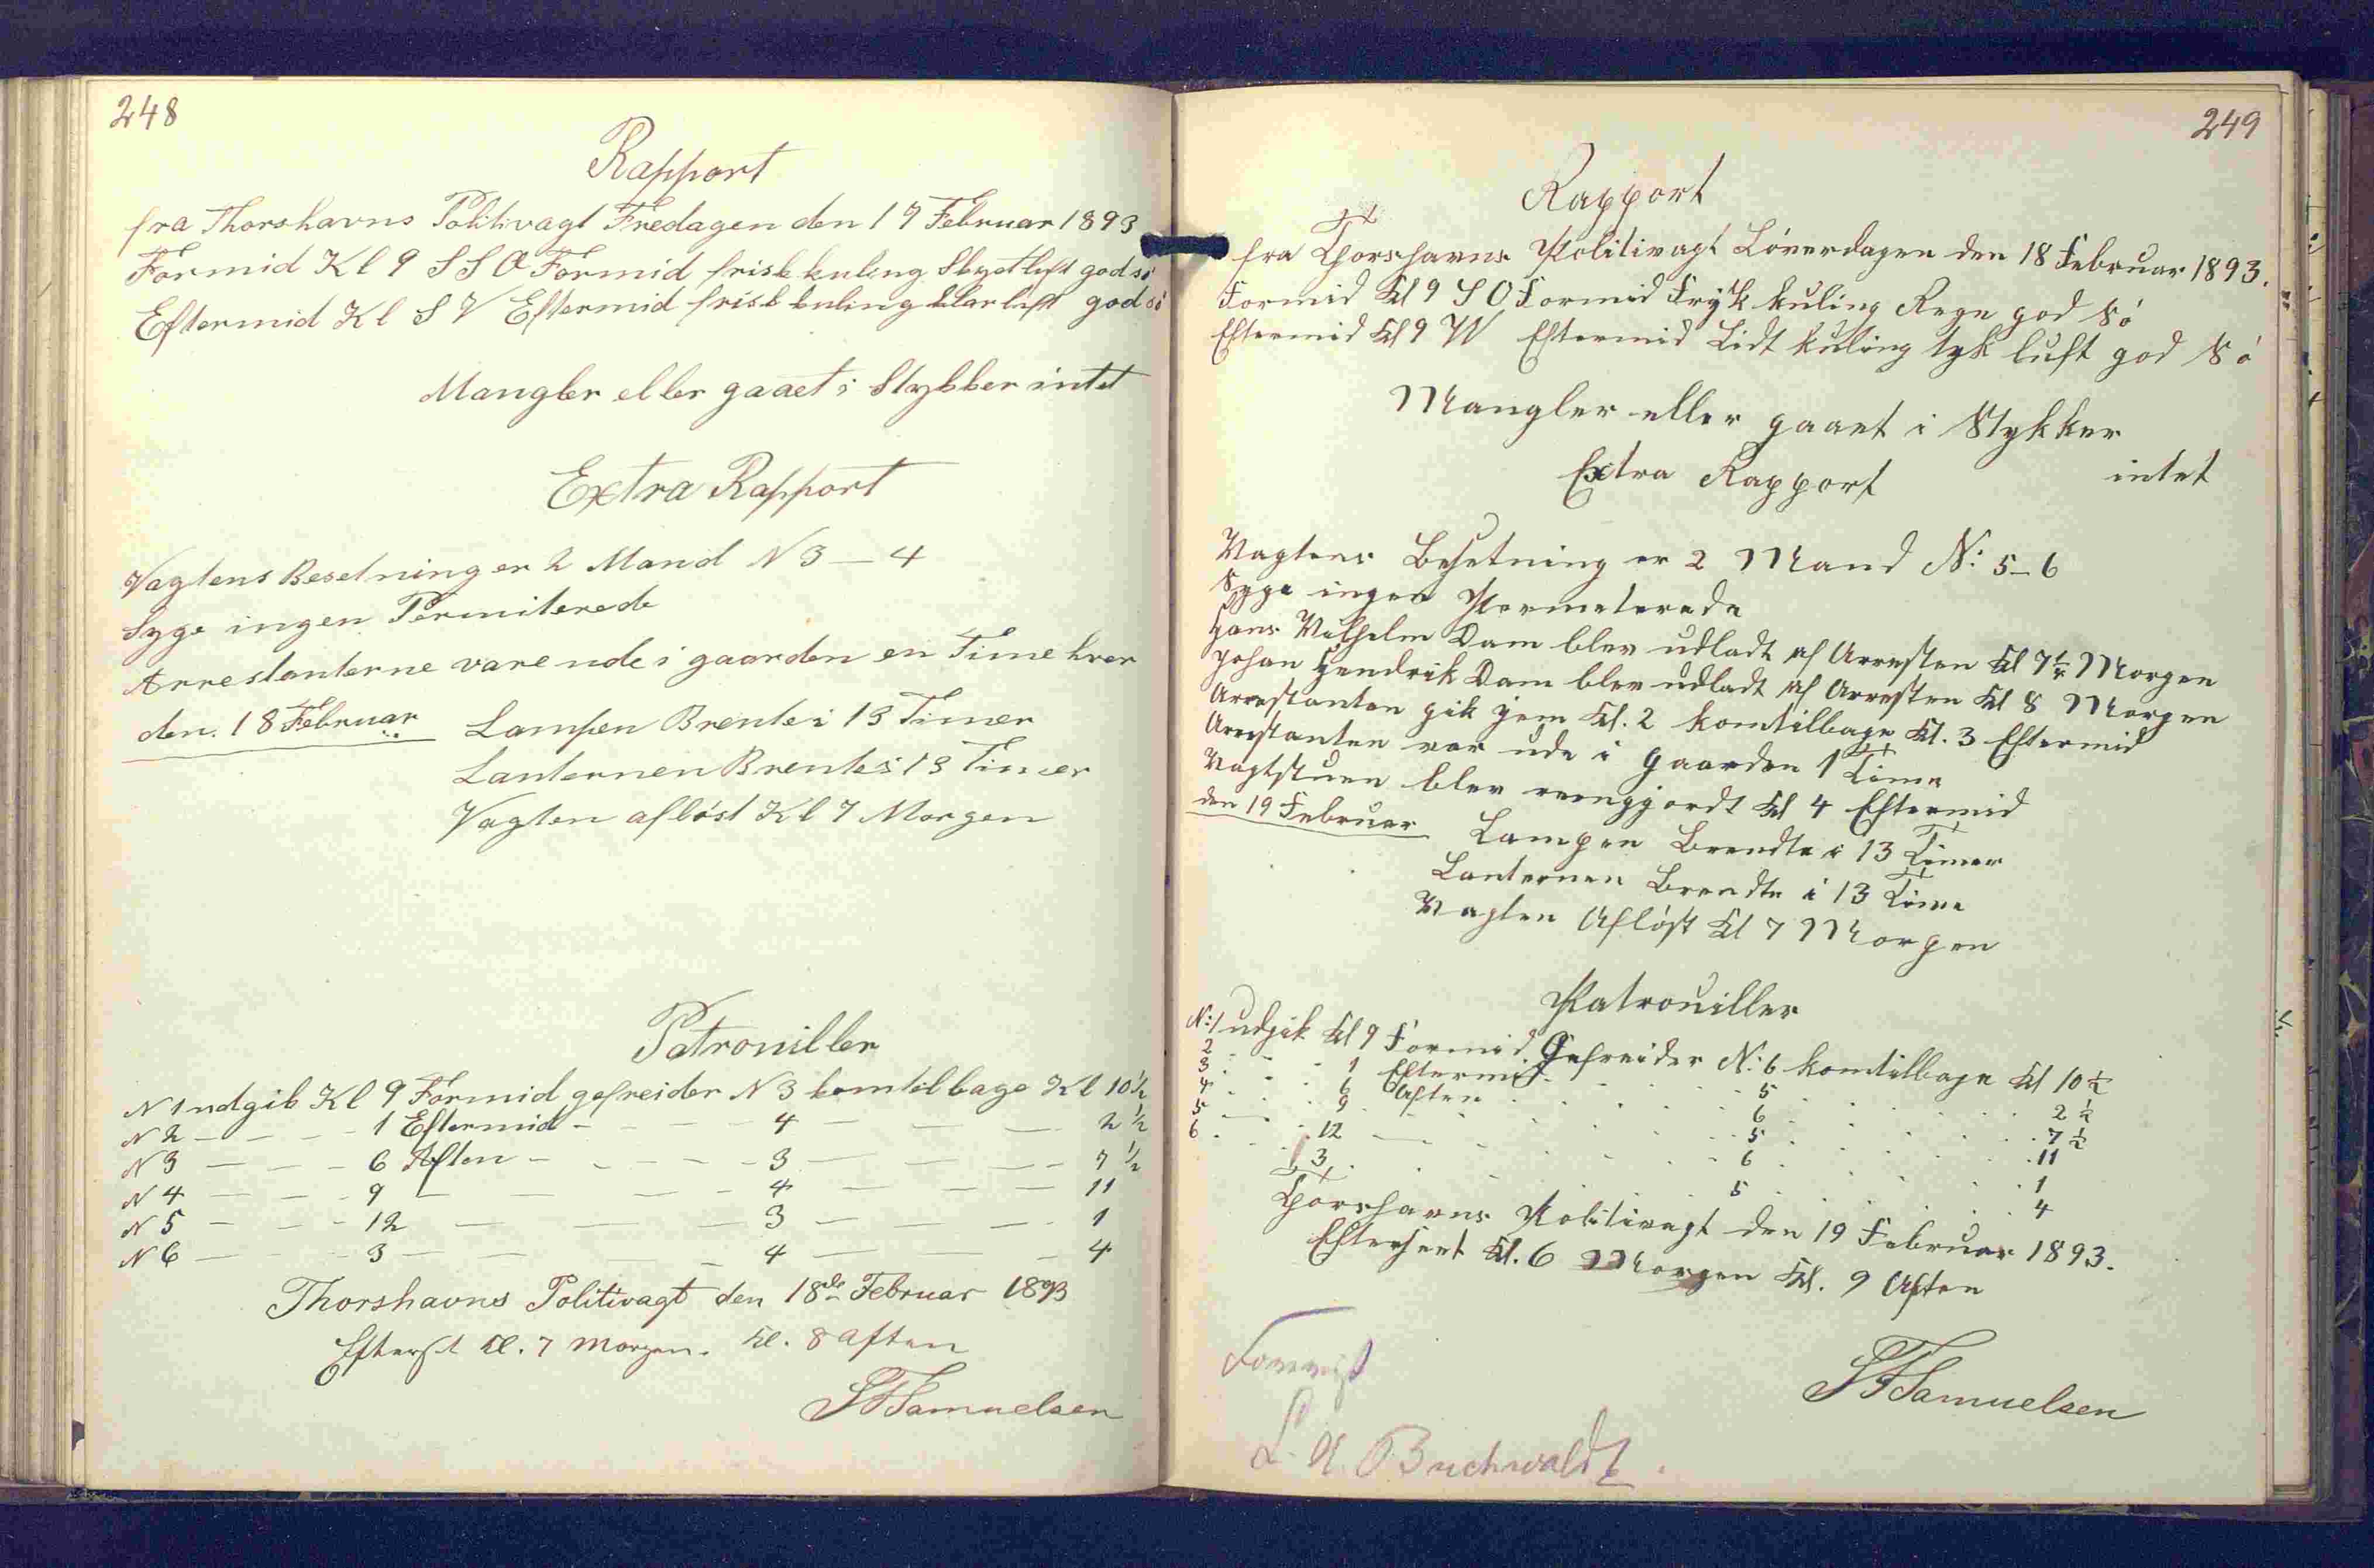 248
Rapport
fra Thorshavns Politivagt Fredagen den 17 Februar 1893
Formid Kl 9 S S O Formid frisk kuling Skyet luft god sö
Eftermid Kl S V Eftermid frisk kuling klar luft god sö
Mangler eller gaaet i Stykker intet
Extra Rapport
Vagtens Besetning er 2 Mand N 3 — 4
Syge ingen Permiterede
Arrestanterne vare ude i gaarden en Time hver
den. 18 Februar Lampen Brente i 13 Timer
Lanternen Brente i 13 Timer
Vagten aflöst Kl 7 Morgen
Patrouiller
N 1 udgik Kl 9 Formid gefreider N 3 komtilbage Kl 10½
N 2 — — — 1 Eftermid — — — 4 — — — 2½
N 3 — — — 6 Aften — — — 3 — — — 7½
N 4 — — — 9 — — — 4 — — — 11
N 5 — — — 12 — — — 3 — — — 1
N 6 — — — 3 — — — 4 — — — 4
Thorshavns Politivagt den 18de Februar 1893
Efterset Kl. 7 Morgen. Kl. 8 aften
Samuelsen
249
Rapport
fra Thorshavns Politivagt Löverdagen den 18 Februar 1893.
Formid Kl 9 S O Formid Frysk kuling Regn god Sö
Eftermid Kl 9 W Eftermid Lidt kuling tyk luft god Sö
Mangler eller gaaet i Stykker
intet
Extra Rapport
Vagtens Besetning er 2 Mand N: 5 – 6
Syge ingen Permeterede
Hans Vilhelm Dam blev udladt af Arresten Kl 7½ Morgen
Johan Hendrik Dam blev udladt af Arresten Kl 8 Morgen
Arrestanten gik hjem Kl. 2 komtilbage Kl. 3 Eftermid
Arrestanten var ude i Gaarden 1 Time
Vagtstuen blev reengjordt Kl 4 Eftermid
den 19 Februar Lampen Brendte i 13 Timer
Lanternen Brendte i 13 Time
Vagten Aflöst Kl 7 Morgen
Patrouiller
N: 1 udgik Kl 9 Formid. Gefreider N: 6 komtilbage Kl 10½
2 . . . 1 Eftermid . . . 5 . . . 2½
3 . . . 6 Aften . . . 6 . . . 7½
4 . . . 9 . . . 5 . . . 11
5 . . . 12 . . . 6 . . . 1
6 . . . 3 . . . 5 . . . 4
Thorshavns Politivagt den 19 Februar 1893.
Efterseet Kl. 6 Morgen Kl. 9 Aften
Samuelsen
Forevist
Buchwaldt.